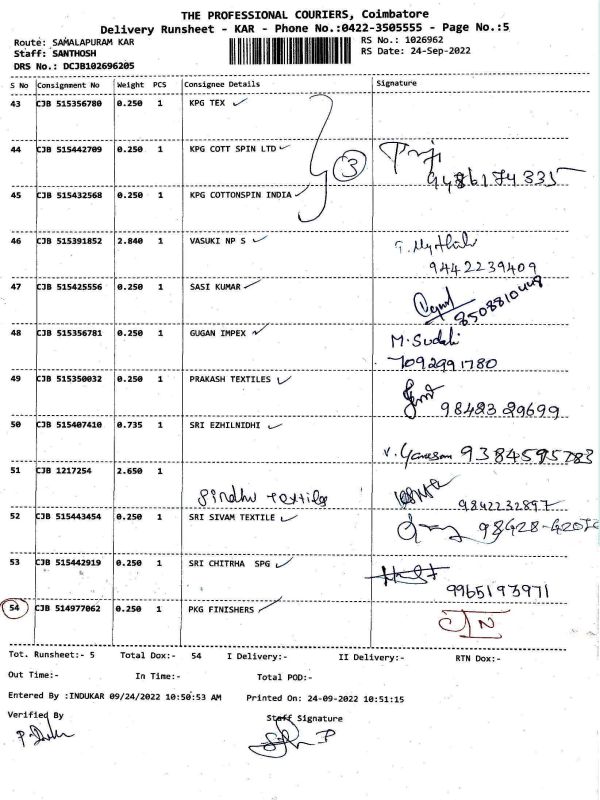 THE PROFESSIONAL COURIERS, Coimbatore
Delivery Runsheet - KAR - Phone No.:0422-3505555 - Page No.:5
Route: SAMALAPURAM KAR RS No.: 1026962
Staff: SANTHOSH RS Date: 24-Sep-2022
DRS No.: DCJB102696205
S No Consignment No Weight PCS Consignee Details Signature
43 CJB 515356780 0.250 1 KPG TEX
44 CJB 515442709 0.250 1 KPG COTT SPIN LTD
3
9486174335
45 CJB 515432568 0.250 1 KPG COTTONSPIN INDIA
46 CJB 515391852 2.840 1 VASUKI NP S
9442239409
47 CJB 515425556 0.250 1 SASI KUMAR
8508810448
48 CJB 515356781 0.250 1 GUGAN IMPEX M.
7092991780
49 CJB 515350032 0.250 1 PRAKASH TEXTILES
98423 29699
50 CJB 515407410 0.735 1 SRI EZHILNIDHI
9384595783
51 CJB 1217254 2.650 1
Sindhu textiles 9842232897
52 CJB 515443454 0.250 1 SRI SIVAM TEXTILE
53 CJB 515442919 0.250 1 SRI CHITRHA SPG
9965193971
54 CJB 514977062 0.250 1 PKG FINISHERS
Tot. Runsheet:- 5 Total Dox:- 54 I Delivery:- II Delivery:- RTN Dox:-
Out Time:- In Time:- Total POD:-
Entered By :INDUKAR 09/24/2022 10:50:53 AM Printed On: 24-09-2022 10:51:15
Verified By Staff Signature